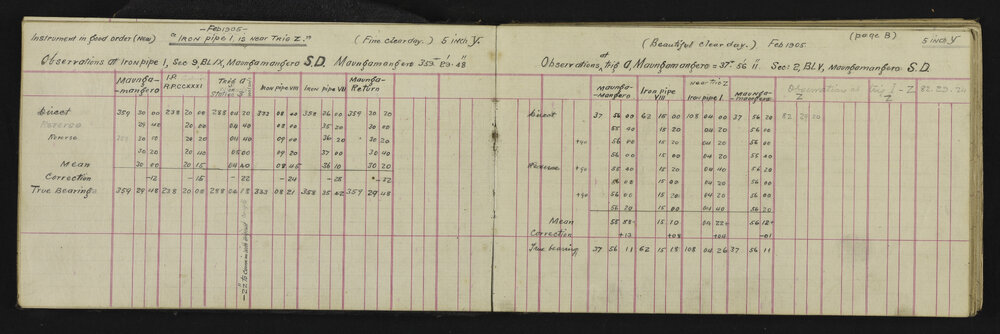 - Feb 1905 -
Instrument in good order (New) "Iron pipe 1. is near Trig Z." (Fine clear day.) 5 inch Y.
Observations at Iron pipe 1, Sec 9, BL IX, Maungamangero S.D. Maungamangero 359-29-48
Maunga-mangero I.P. Trig a Iron pipe VIII Iron pipe VII Maunga Return
Direct 359 30 20 238 20 00 288 04 20 333 08 40 358 36 00 359 30 20
Reverse 30 00 20 00 04 40 08 00 35 40 30 20
Reverse 30 10 20 20 04 40 09 00 36 20 30 20
30 20 20 20 05 00 09 20 37 00 30 40
Mean 30 00 20 15 04 40 08 45 36 10 30 20
Correction -12 -15 -22 -24 -28 -32
True Bearings 359 29 48 238 20 00 288 04 18 333 08 21 358 35 42 359 29 48
(page B)
(Beautiful clear day.) Feb 1905 5 inch Y
Observations at trig a, Maungamangero = 37°-56' 11" Sec: 2, BL V, Maungamangero S.D.
Maunga-mangero Iron pipe VIII near Trig Z Iron pipe 1 Maunga-mangero Observation at trig I - Z 82. 29. 24
Direct 37 56 00 62 15 00 108 04 00 37 56 20 82 29 20
55 40 15 20 04 20 56 00
+90 56 00 15 20 04 20 56 00
56 00 15 00 04 20 55 40
Reverse +90 55 40 15 20 04 40 56 20
56 00 15 00 04 20 56 00
+90 56 20 15 20 04 20 56 20
56 20 15 00 04 40 56 20
Mean 55 58+ 15 10 04 22+ 56 12+
Correction +13 +08 +04 -01
True bearing 37 56 11 62 15 18 108 04 26 37 56 11